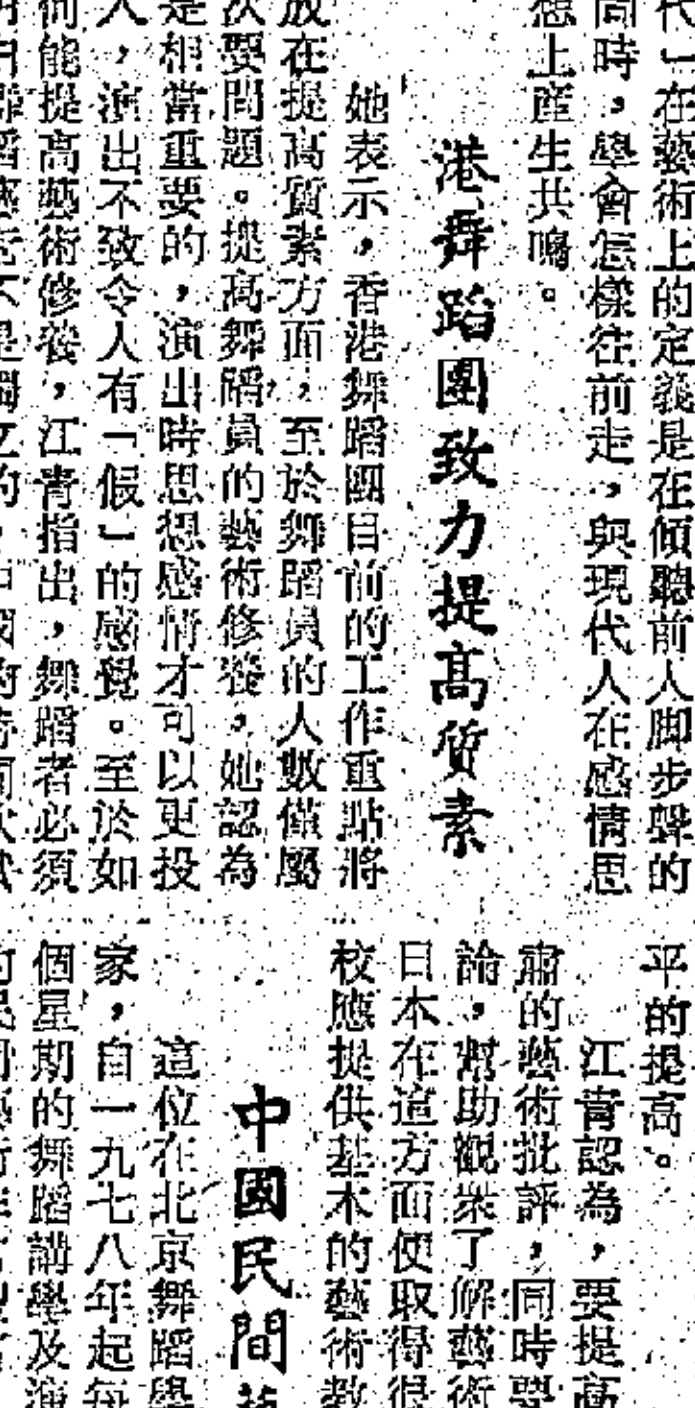 代」在藝術上的定義是在傾聽前人脚步聲的
同時，學會怎樣往前走，與現代人在感情思
想上產生共鳴。
港舞蹈團致力提高質素
她表示，香港舞蹈團目前的工作重點將
放在提高質素方面，至於舞蹈員的人數僅屬
次要問題。提高舞蹈員的藝術修養，她認為
是相當重要的，演出時思想感情才可以更投
人，演出不致令人有「假」的感覺。至於如
何能提高藝術修養，江青指出，舞蹈者必須
平的提高。
江青認為，要提高
肅的藝術批評，同時
論，幫助觀衆了解藝術
日本在這方面使取得很
校應提供基本的藝術教
中國民間
這位在北京舞蹈學
家，自一九七八年起每
個星期的舞蹈講學及演